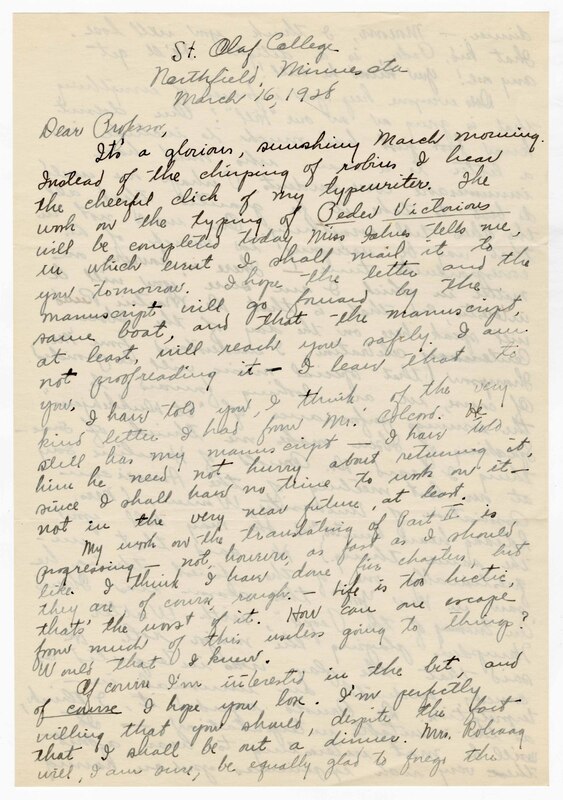 St. Olaf College
Northfield, Minnesota
March 16, 1928
Dear Professor,
It's a glorious, sunshiny March morning.
Instead of the chirping of robins I hear
the cheerful click of my typewriter. The
work on the typing of Peder Victorious
will be completed today Miss tells me,
in which event I shall mail it to
you tomorrow. I hope the letter and the
manuscript will go forward by the
same boat, and that the manuscript,
at least, will reach you safely. I am
not proofreading it – I leave that to
you.
I have told you, I think of the very
kind letter I had from Mr. Alcord. He
still has my manuscript – I have told
him he need not hurry about returning it,
since I shall have no time to work on it –
not in the very near future, at least.
My work on the translating of Part II is
progressing – not, however, as fast as I should
like. I think I have done five chapters, but
they are of course, rough. – Life is too hectic,
that's the worst of it. How can one escape
from much of this useless going to things?
Would that I knew.
Of course I'm interested in the bet, and
of course I hope you lose. I'm perfectly
willing that you should, despite the fact
that I shall be out a dinner. Mrs. Rolvaag
will, I am sure, be equally glad to forego the